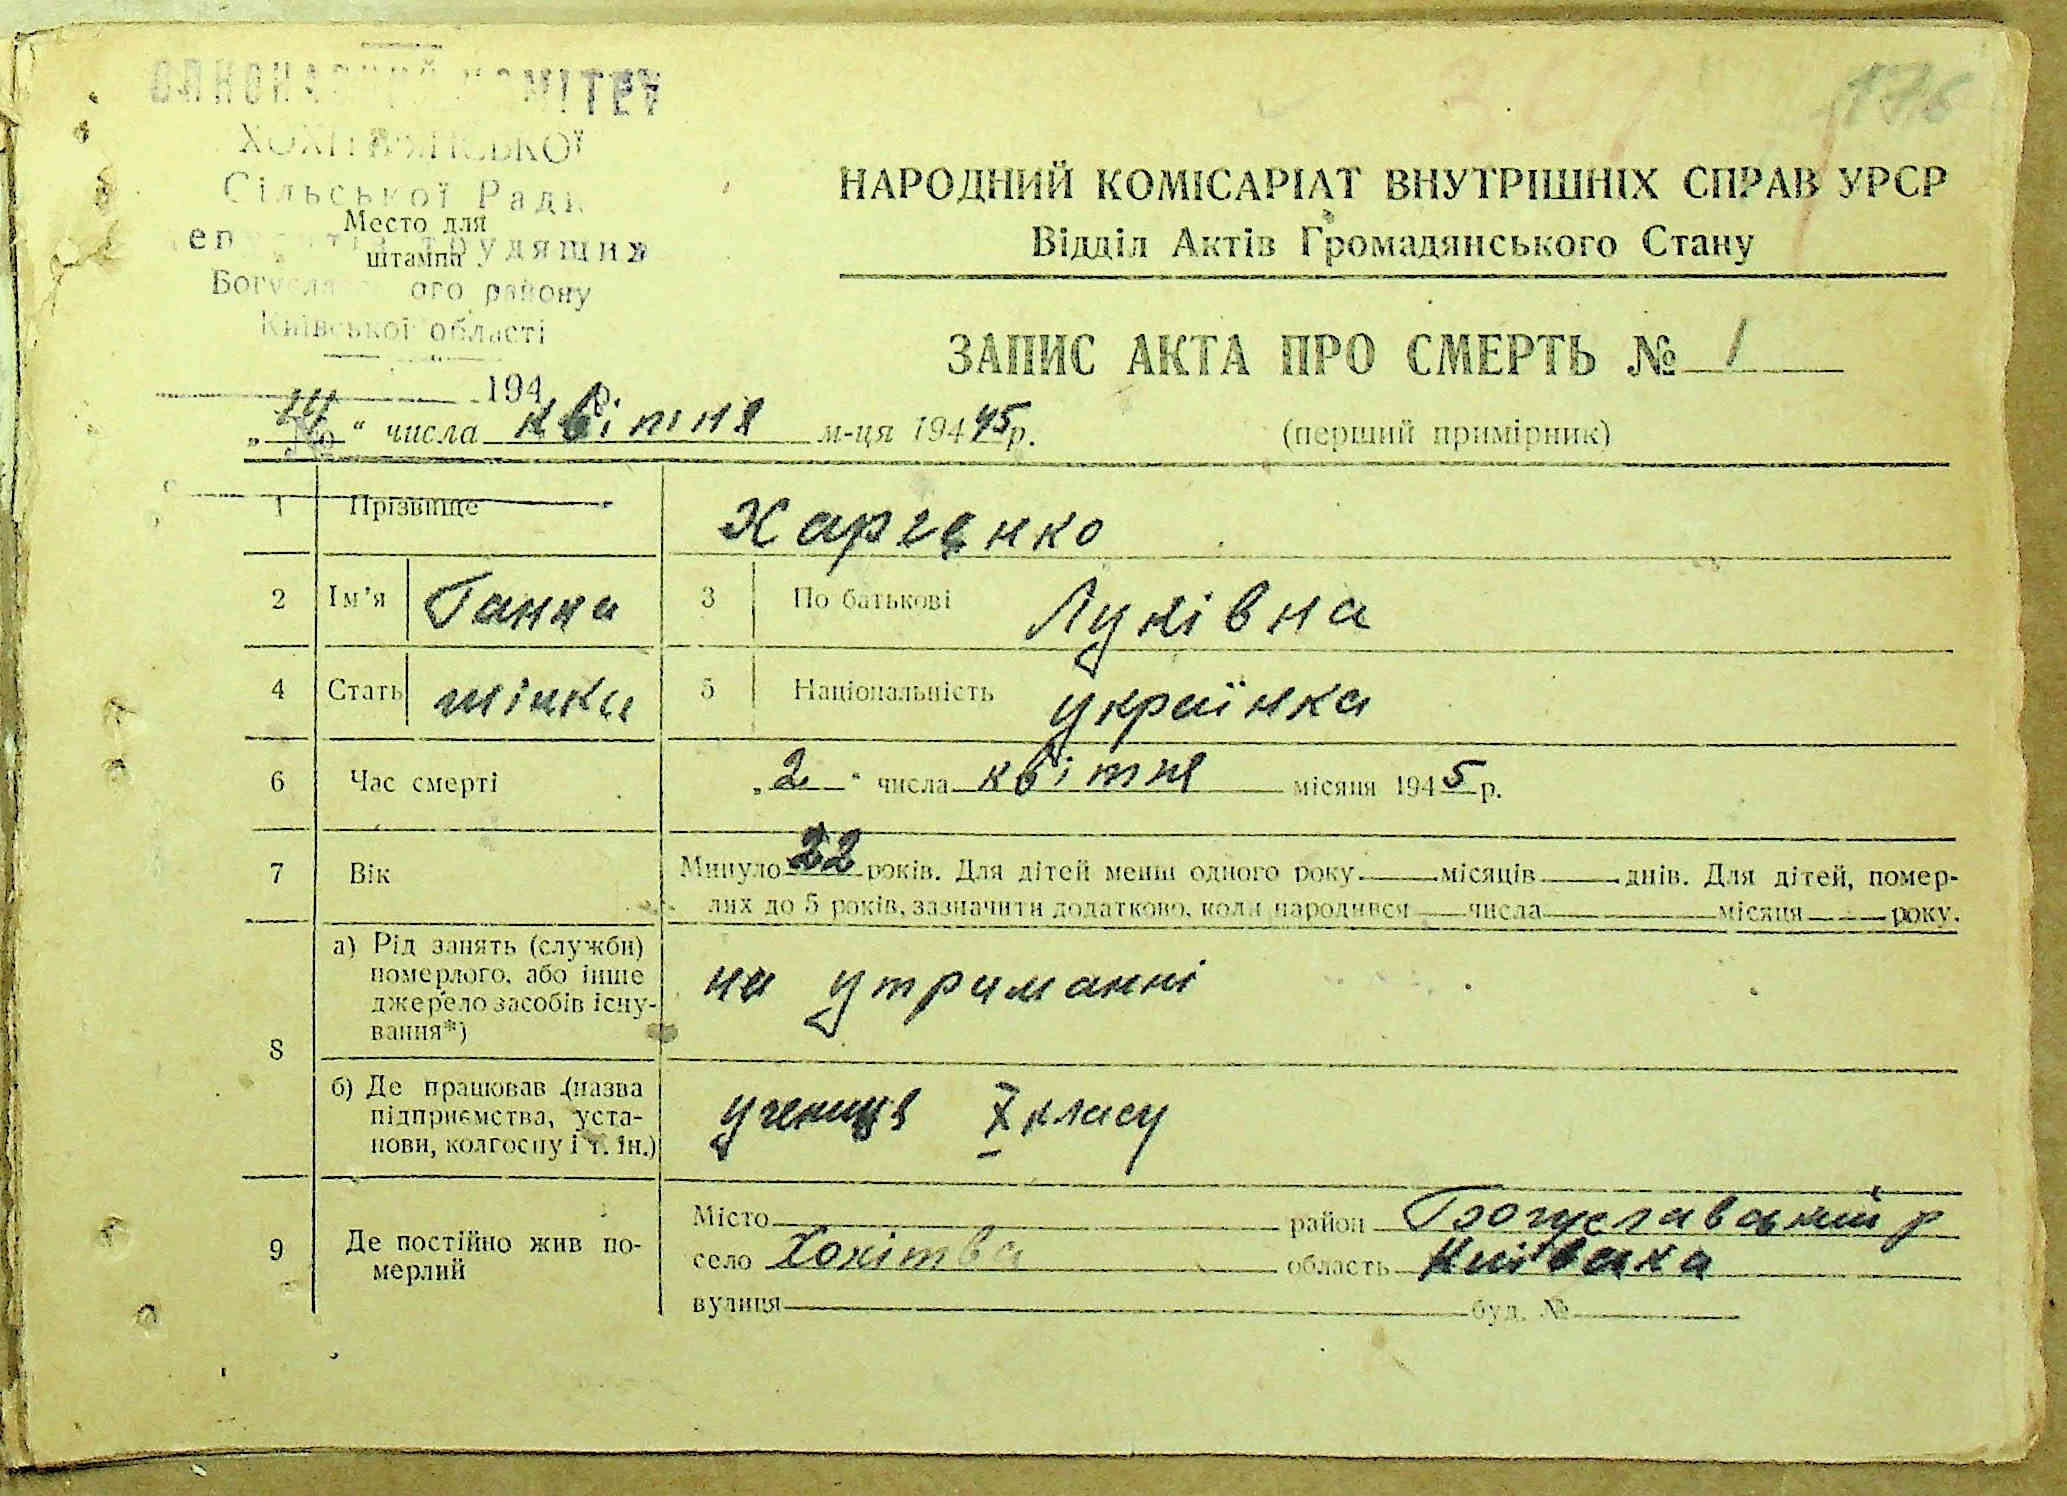 176
ХОХІТВЯНСЬКОЇ
Сільської Ради
трудящих
Богуславського району
Київської області
Место для
штампа
194 р.
НАРОДНИЙ КОМІСАРІАТ ВНУТРІШНІХ СПРАВ УРСР
Відділ Актів Громадянського Стану
ЗАПИС АКТА ПРО СМЕРТЬ № 1
„14“ числа квітня м-ця 194 45 р. (перший примірник)
1 Прізвище Харченко
2 Ім'я Ганна 3 По батькові Луківна
4 Стать жінка 5 Національність українка
6 Час смерті „2“ числа квітня місяця 1945 р.
7 Вік Минуло 22 років. Для дітей менш одного року місяців днів. Для дітей, помер-
лих до 5 років, зазначити додатково, коли народився числа місяця року.
8 а) Рід занять (служби)
померлого, або інше
джерело засобів існу-
вання*)
на утриманні
б) Де працював (назва
підприємства, уста-
нови, колгоспу і т. ін.)
учениця X класу
9 Де постійно жив по-
мерлий
Місто район Богуславський р
село Хохітва область Київська
вулиця буд. №